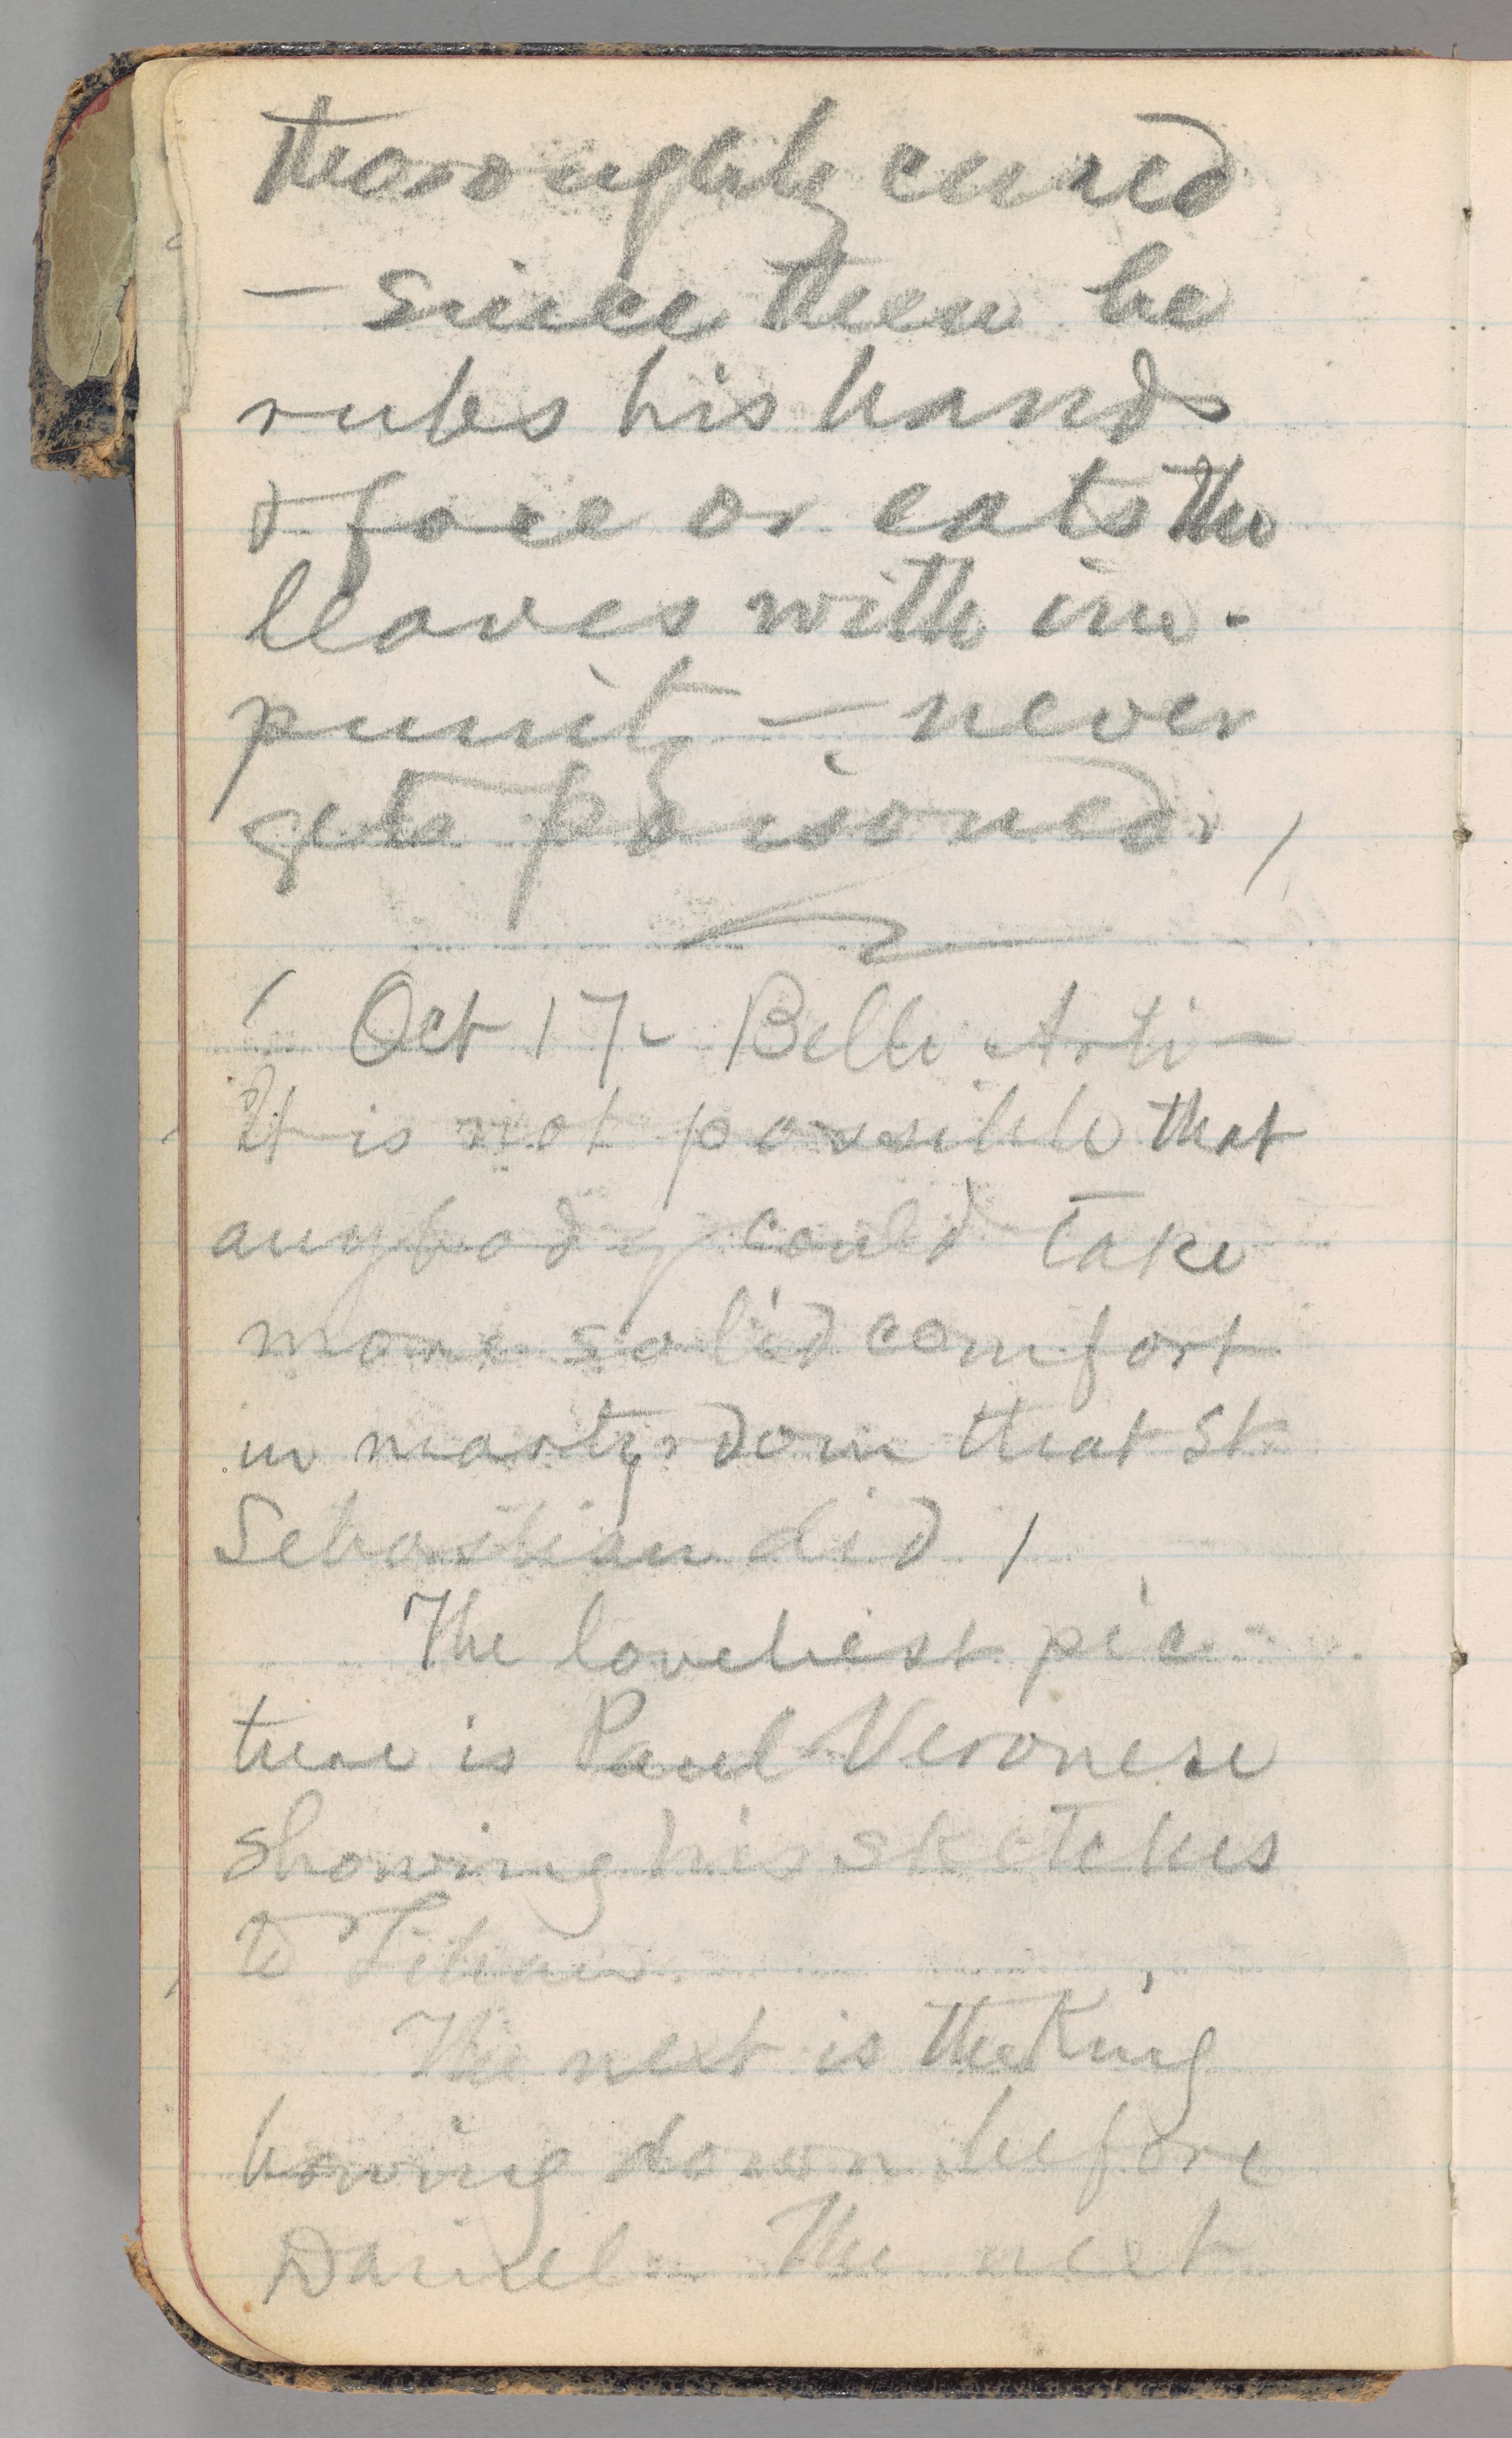 thoroughly cured
— since then he
rubs his hands
& face or eats the
leaves with im-
punity — never
gets poisoned.
Oct 17 - Belle Arti —
It is not possible that
anybody could take
more solid comfort
in martyrdom that St
Sebastian did.
The loveliest pic-
ture is Paul Veronese
showing his sketches
to Titian.
The next is the King
bowing down before
Daniel. The next